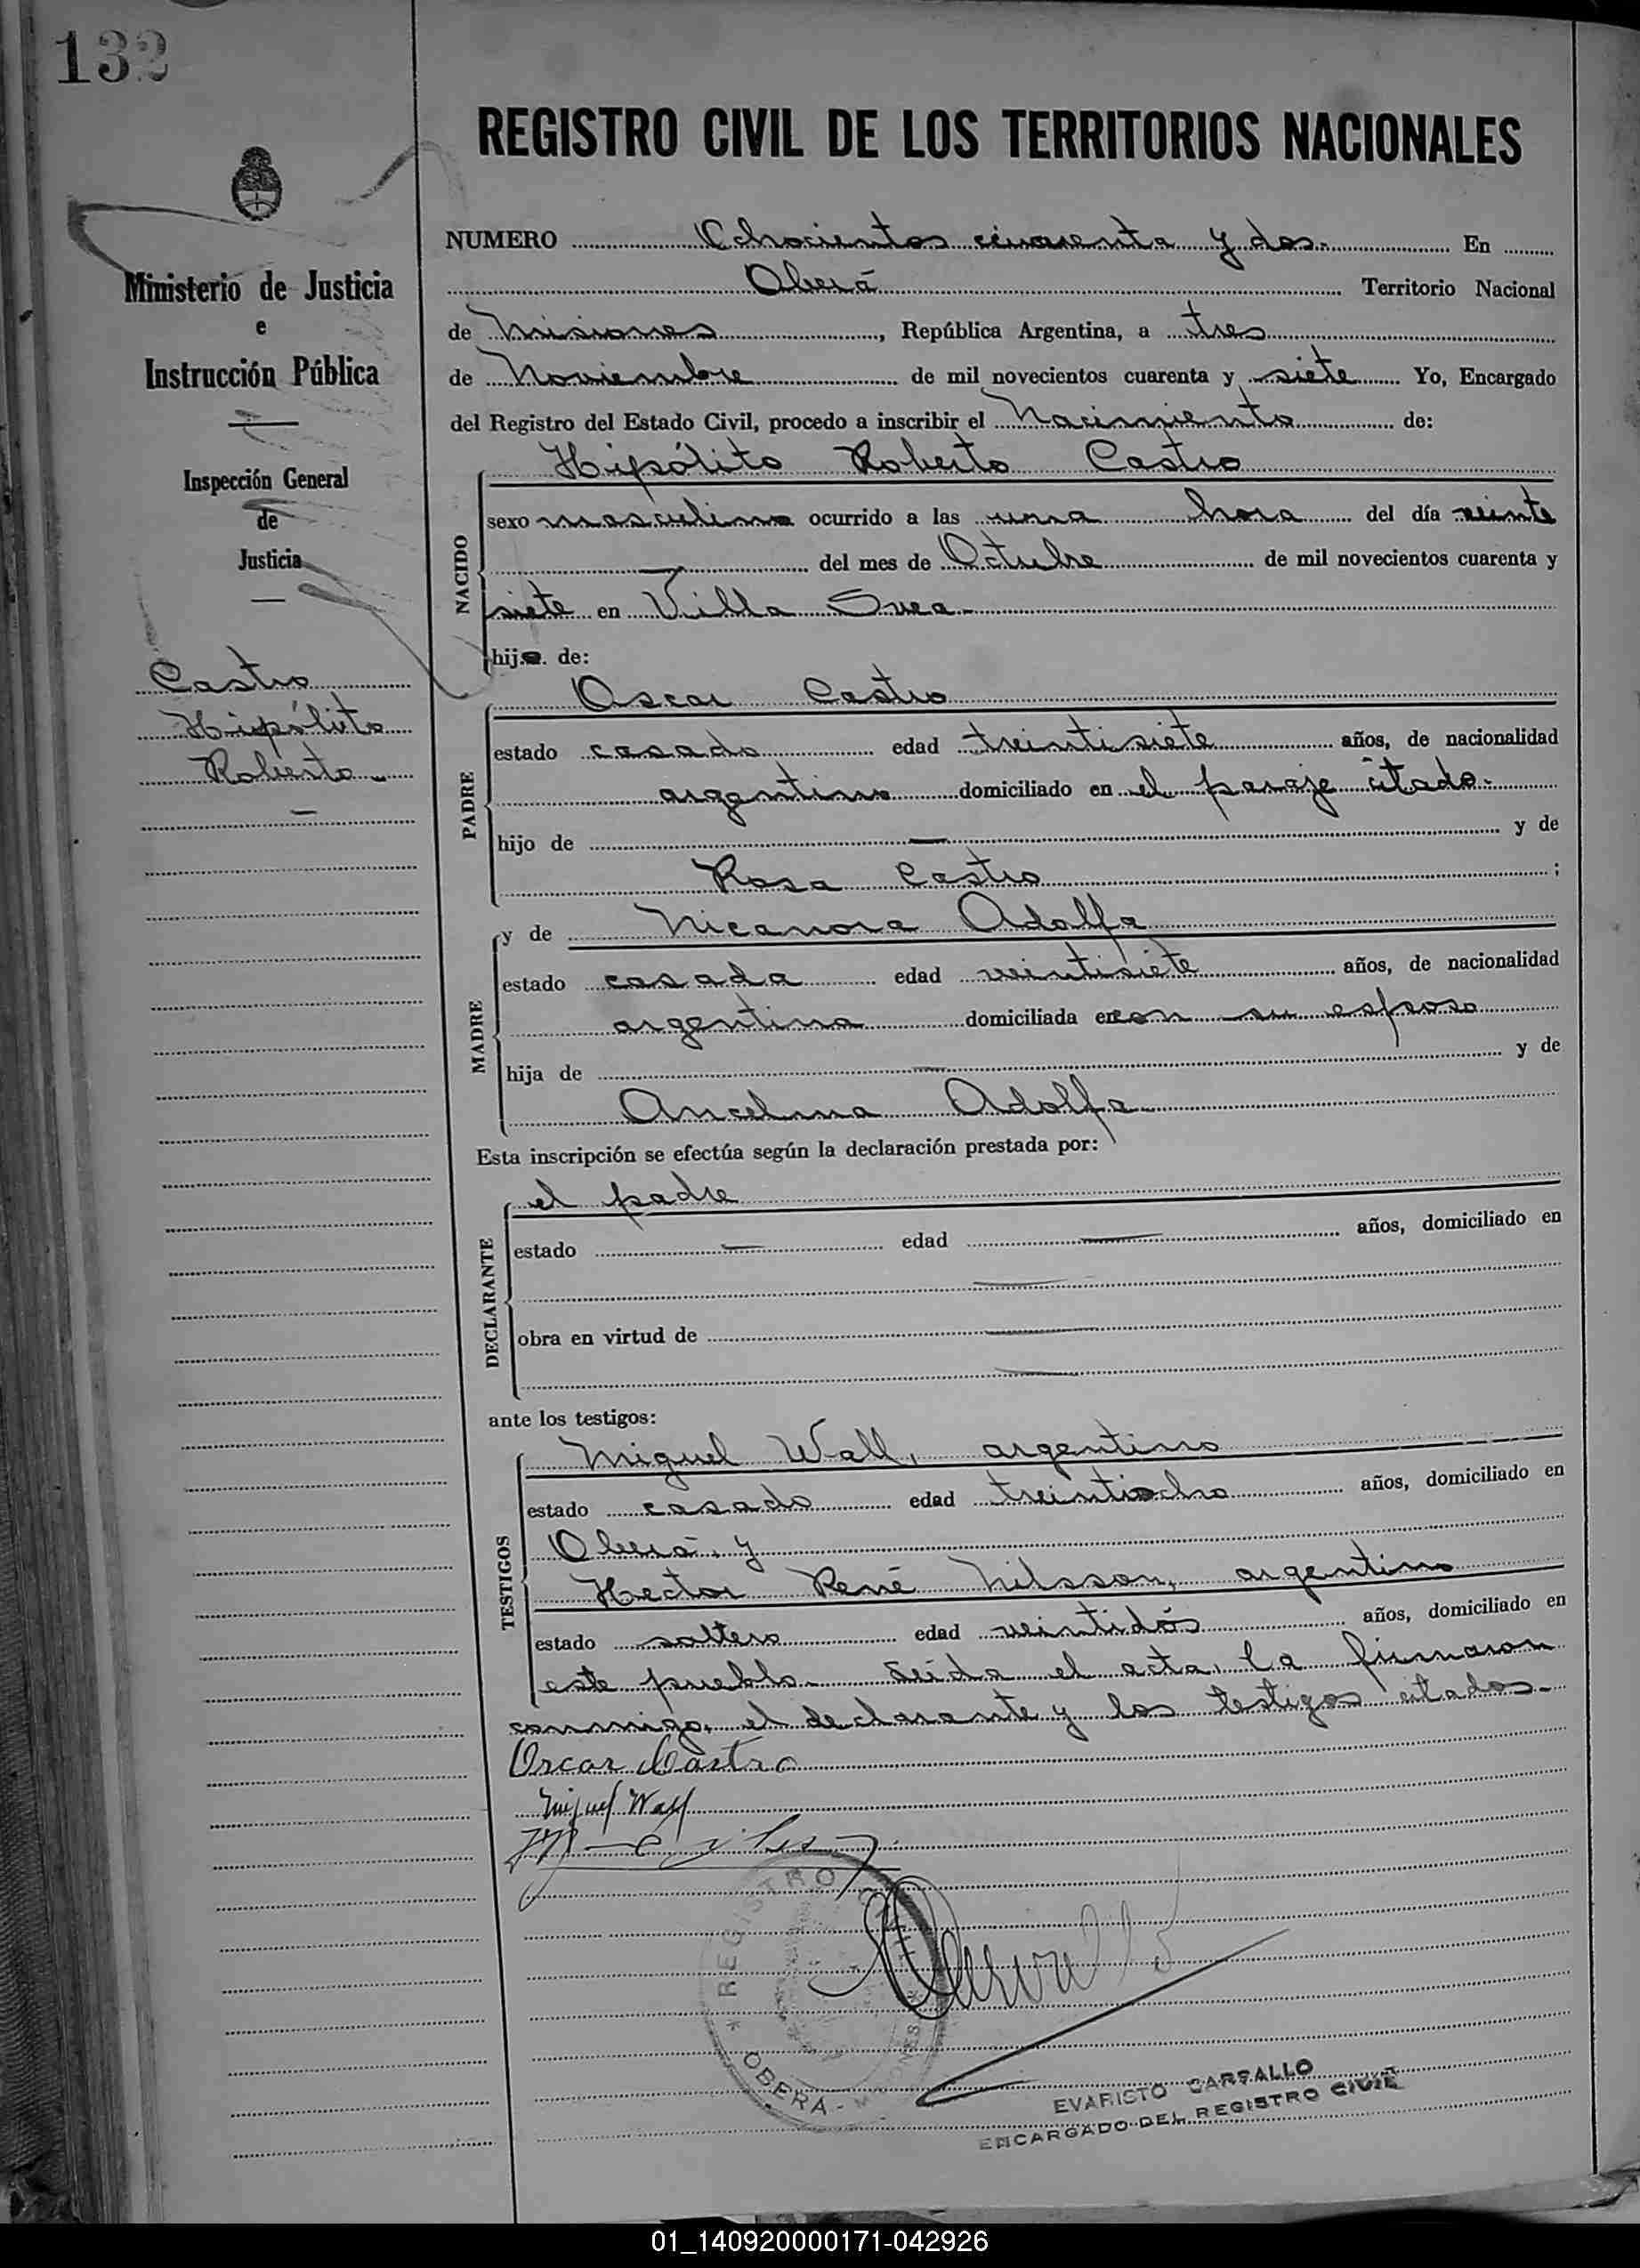 132
REGISTRO CIVIL DE LOS TERRITORIOS NACIONALES
Ministerio de Justicia
e
Instrucción Pública
Inspección General
de
Justicia
Castro
Hipólito
Roberto
NUMERO Ochocientos cincuenta y dos. En
Oberá Territorio Nacional
de Misiones, República Argentina, a tres
de Noviembre de mil novecientos cuarenta y siete Yo, Encargado
del Registro del Estado Civil, procedo a inscribir el Nacimiento de:
NACIDO
Hipólito Roberto Castro
sexo masculino ocurrido a las una hora del día veinte
— del mes de Octubre de mil novecientos cuarenta y
siete en Villa Svea
hijo de:
PADRE
Oscar Castro
estado casado edad treintisiete años, de nacionalidad
argentino domiciliado en el paraje citado.
hijo de — y de
Rosa Castro ;
MADRE
y de Nicanora Adolfa
estado casada edad veintisiete años, de nacionalidad
argentina domiciliada en con su esposo
hija de — y de
Ancelma Adolfa
Esta inscripción se efectúa según la declaración prestada por:
DECLARANTE
el padre
estado — edad — años, domiciliado en
—
obra en virtud de —
—
ante los testigos:
TESTIGOS
Miguel Wall, argentino
estado casado edad treintiocho años, domiciliado en
Oberá, y
Hector René Nilsson, argentino
estado soltero edad veintidós años, domiciliado en
este pueblo. Leída el acta, la firmaron
conmigo, el declarante y los testigos citados.
Oscar Castro
Miguel Wall
REGISTRO
OBERA - MISIONES
EVARISTO CARSALLO
ENCARGADO DEL REGISTRO CIVIL
01_140920000171-042926